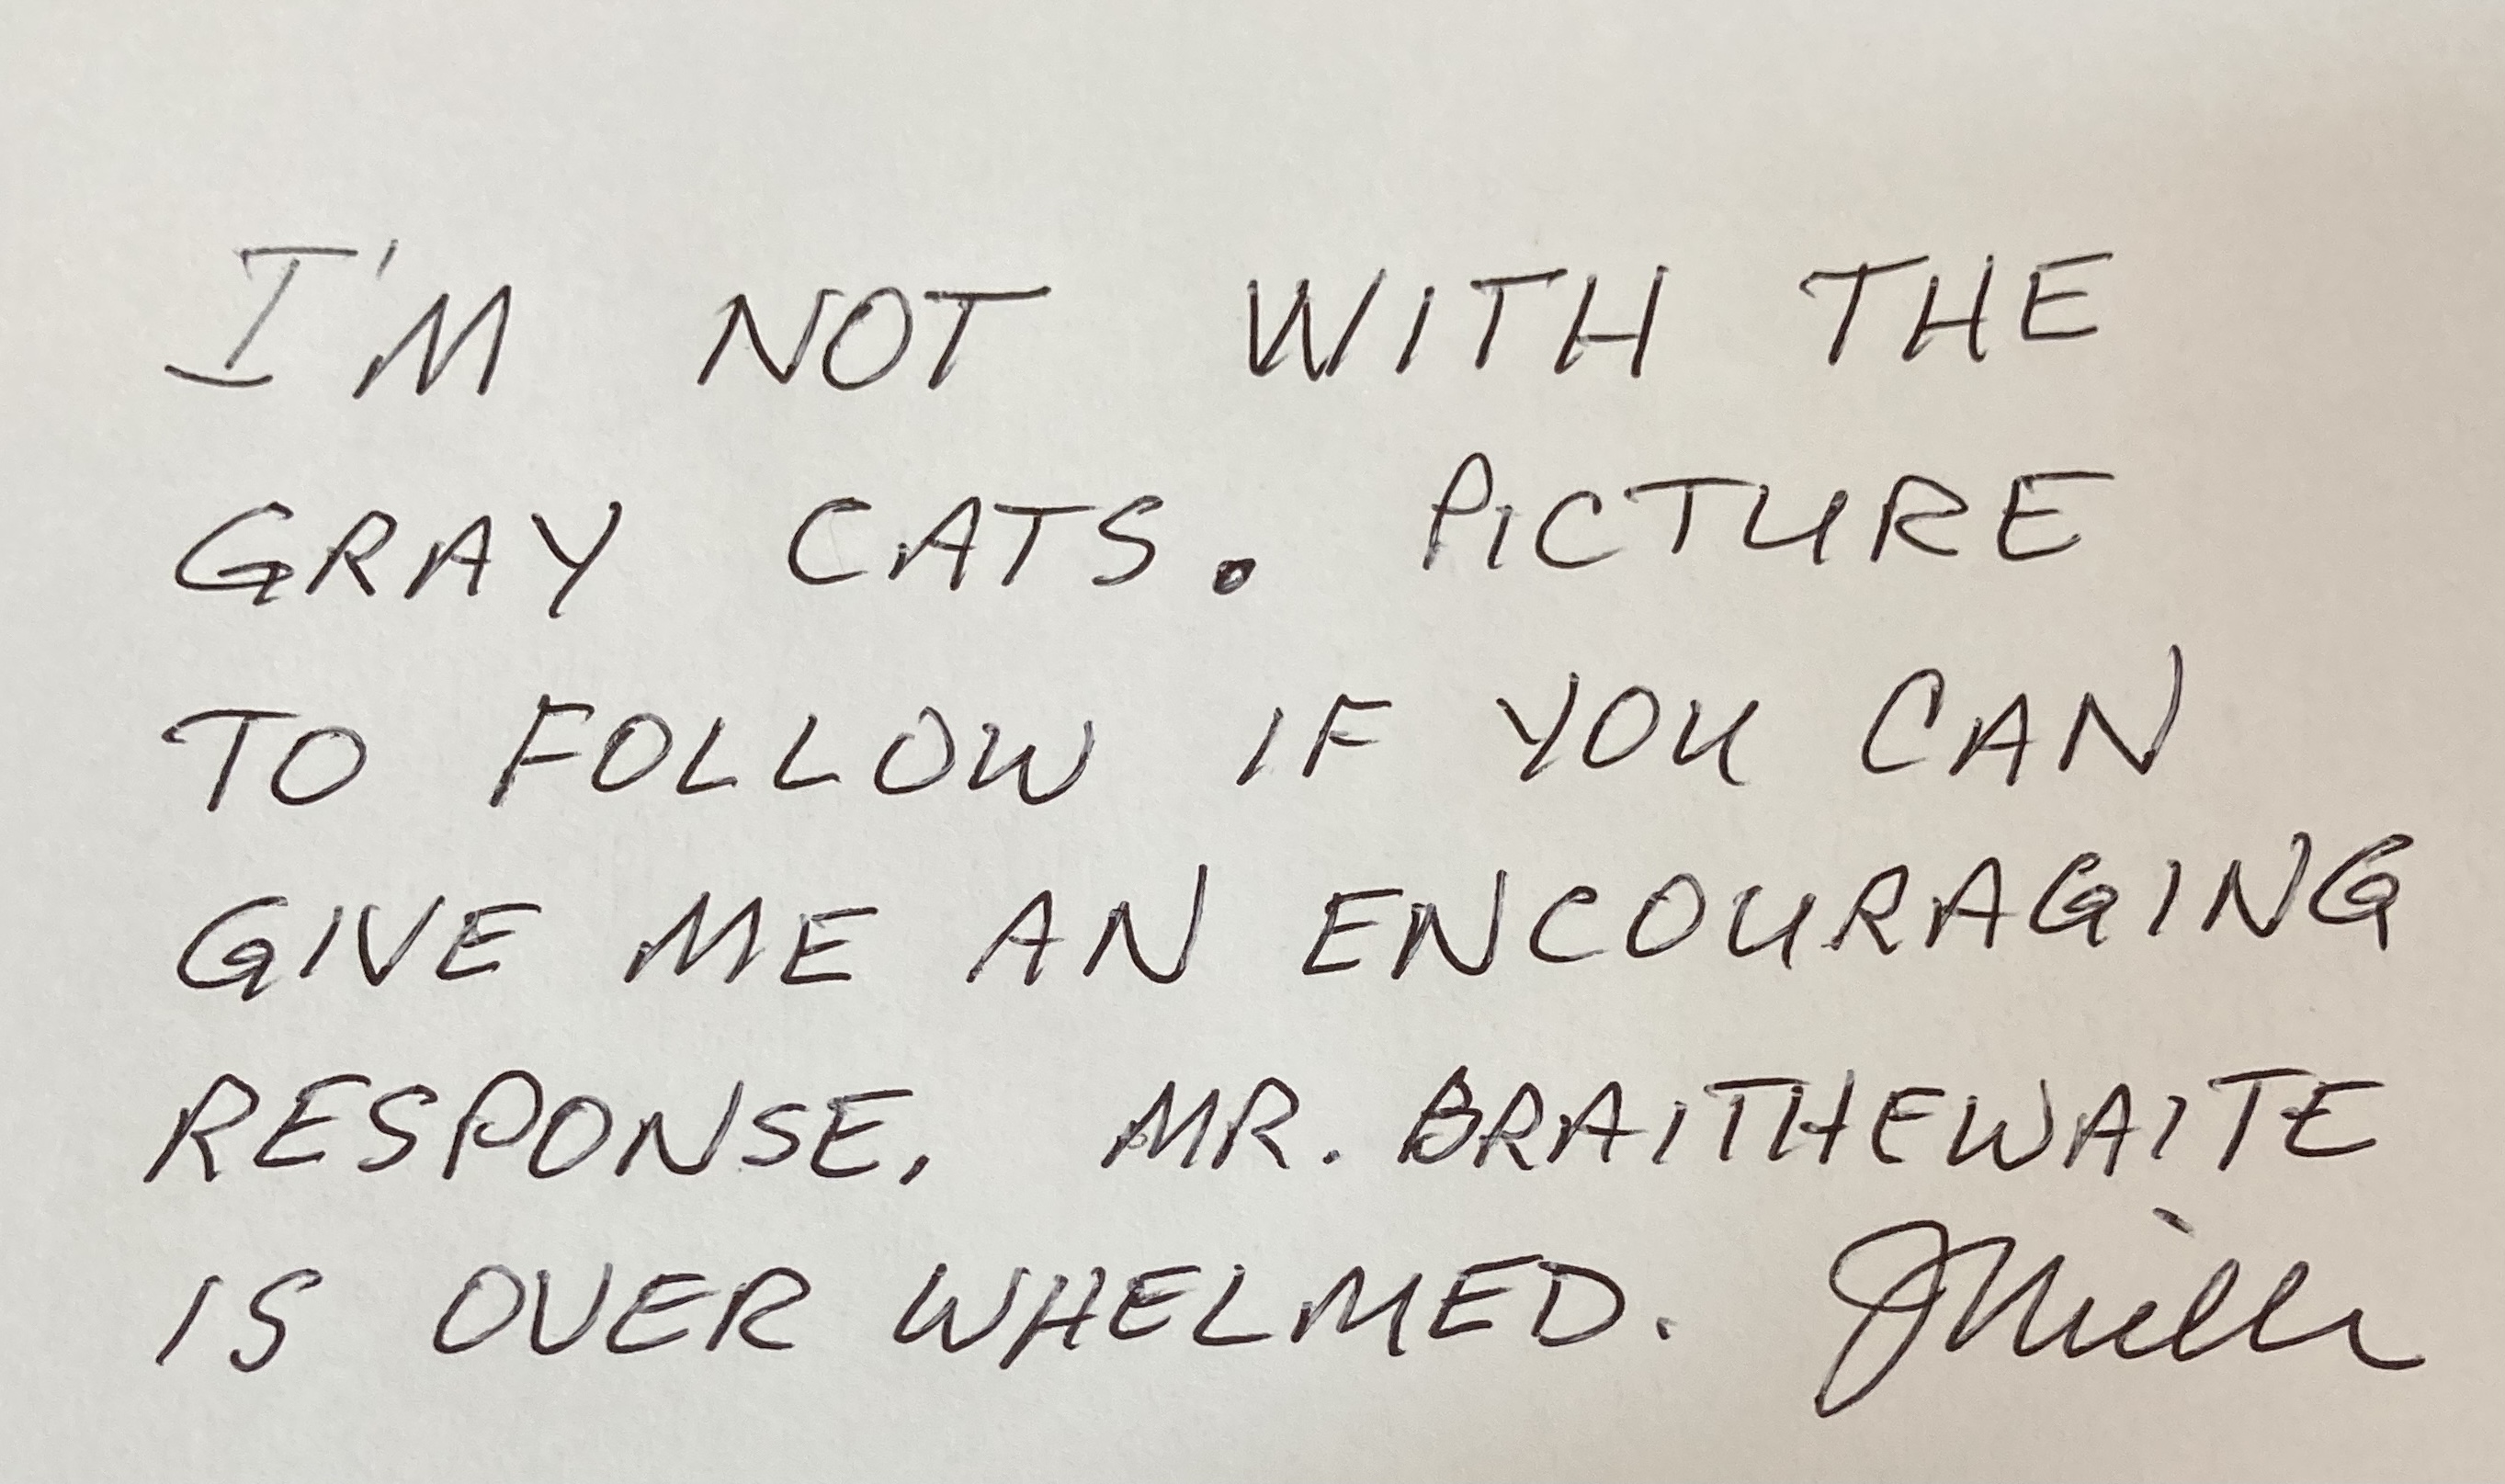 I'M NOT WITH THE
GRAY CATS. PICTURE
TO FOLLOW IF YOU CAN
GIVE ME AN ENCOURAGING
RESPONSE, MR. BRAITHEWAITE
IS OVER WHELMED. JMiller